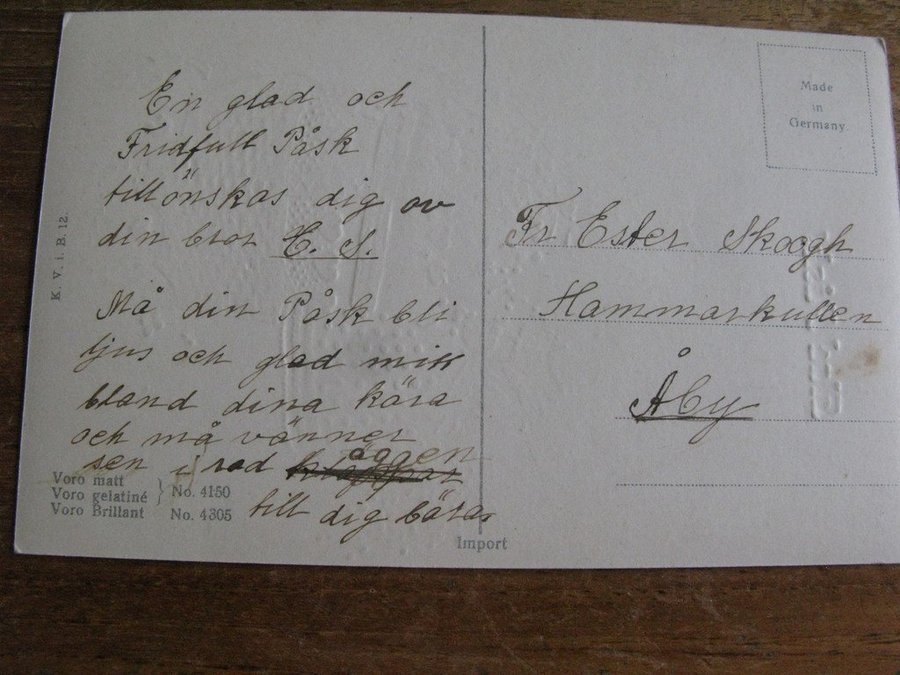 En glad och
Fridfull Påsk
tillönskas dig av
din bror C. S.
Må din Påsk bli
ljus och glad
bland dina kära
och må vänner
sen i rad äggen
till dig bära
Fr Ester Skoogh
Hammarkullen
Åby
Made
in
Germany
K. V. i. B. 12.
Voro matt
Voro gelatiné } No. 4150
Voro Brillant No. 4305
Import